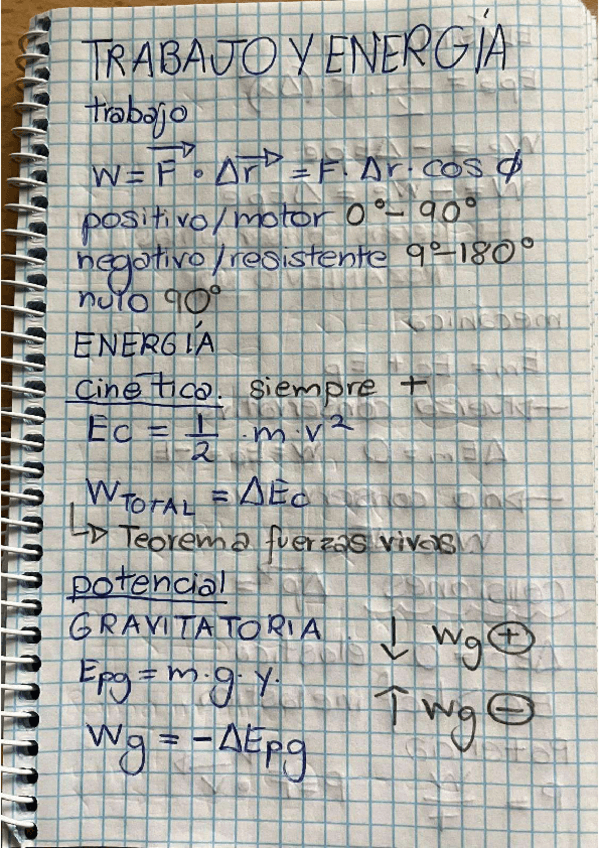 TRABAJO Y ENERGÍA
trabajo
W = F⃗ · Δr⃗ = F · Δr · cos ϕ
positivo/motor 0º–90º
negativo/resistente 9º–180º
nulo 90º
ENERGÍA
cinética. siempre +
Ec = 1/2 · m · v²
W TOTAL = ΔEc
↳ Teorema fuerzas vivas
potencial
GRAVITATORIA ↓ Wg ⊕
Epg = m · g · y. ↑ Wg ⊖
Wg = -ΔEpg